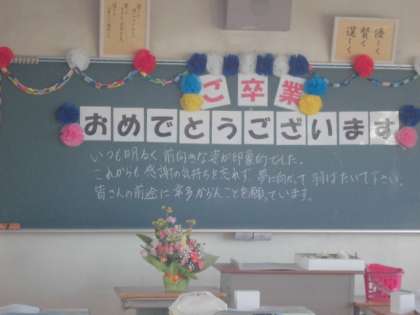 優しく
賢く
逞しく
ご卒業
おめでとうございます
いつも明るく前向きな姿が印象的でした。
これからも感謝の気持ちを忘れず夢に向かって羽ばたいて下さい。
皆さんの前途に幸多からんことを願っています。